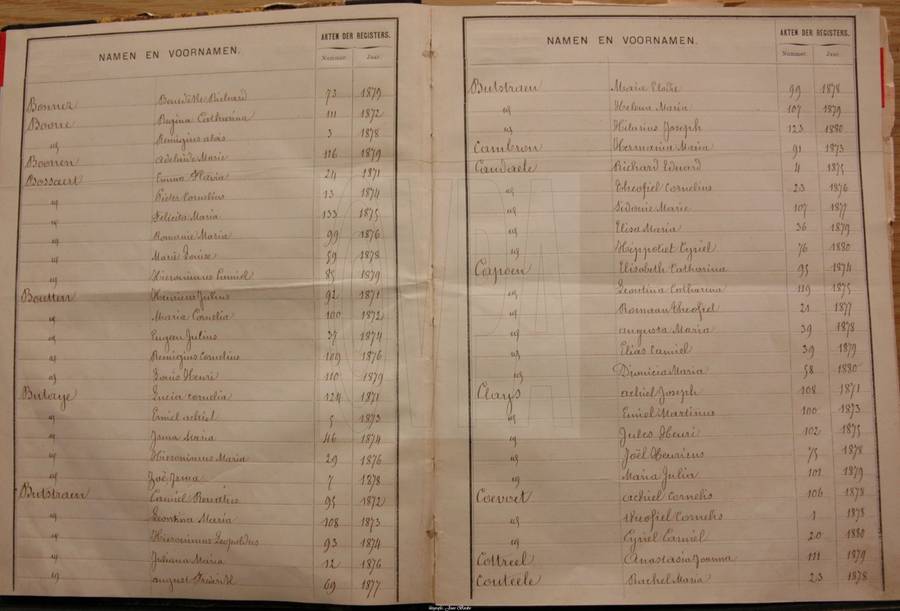 NAMEN EN VOORNAMEN. AKTEN DER REGISTERS.
Nummer. Jaar.
Bonnez Benedictus Richard 73 1879
Boone Regina Catharina 111 1872
id Remigius alois 3 1878
Boonen Adelaïde Marie 116 1879
Bossaert Emma Flavia 24 1871
id Pieter Cornelius 13 1874
id Felicita Maria 133 1875
id Romanie Maria 99 1876
id Marie Louise 59 1878
id Hieronimus Camiel 85 1879
Boutten Henricus Julius 92 1871
id Maria Cornelia 100 1872
id Eugen Julius 37 1874
id Remigius Cornelius 109 1876
id Louis Henri 110 1879
Butaye Lucia Cornelia 124 1871
id Emiel achiel 5 1873
id Irma Maria 46 1874
id Hieronimus Maria 29 1876
id Zoë Irma 7 1878
Butstraen Camiel Renatus 95 1872
id Leontina Maria 108 1873
id Hieronimus Leopoldus 93 1874
id Juliana Maria 12 1876
id august 69 1877
NAMEN EN VOORNAMEN. AKTEN DER REGISTERS.
Nummer. Jaar.
Butstraen Maria Elodie 99 1878
id Helena Maria 107 1879
id Hilarius Joseph 123 1880
Cambron Hermania Maria 91 1873
Candaele Richard Eduard 4 1875
id Theofiel Cornelius 23 1876
id Sidonie Marie 107 1877
id Elisa Maria 36 1879
id Hippoliet Cyriel 76 1880
Capoen Elisabeth Catharina 95 1874
id Leontina Catharina 119 1875
id Romaan Theofiel 21 1877
id augusta Maria 39 1878
id Elias Camiel 39 1879
id Dionicia Maria 58 1880
Claÿs achiel Joseph 108 1871
id Emiel Martinus 100 1873
id Jules Henri 102 1875
id Joël Henricus 75 1878
id Maria Julia 101 1879
Coevoet achiel Cornelis 106 1878
id Theofiel Cornelis 1 1878
id Cyriel Camiel 20 1880
Cottreel Anastasia Joanna 111 1879
Couteele Rachel Maria 23 1878